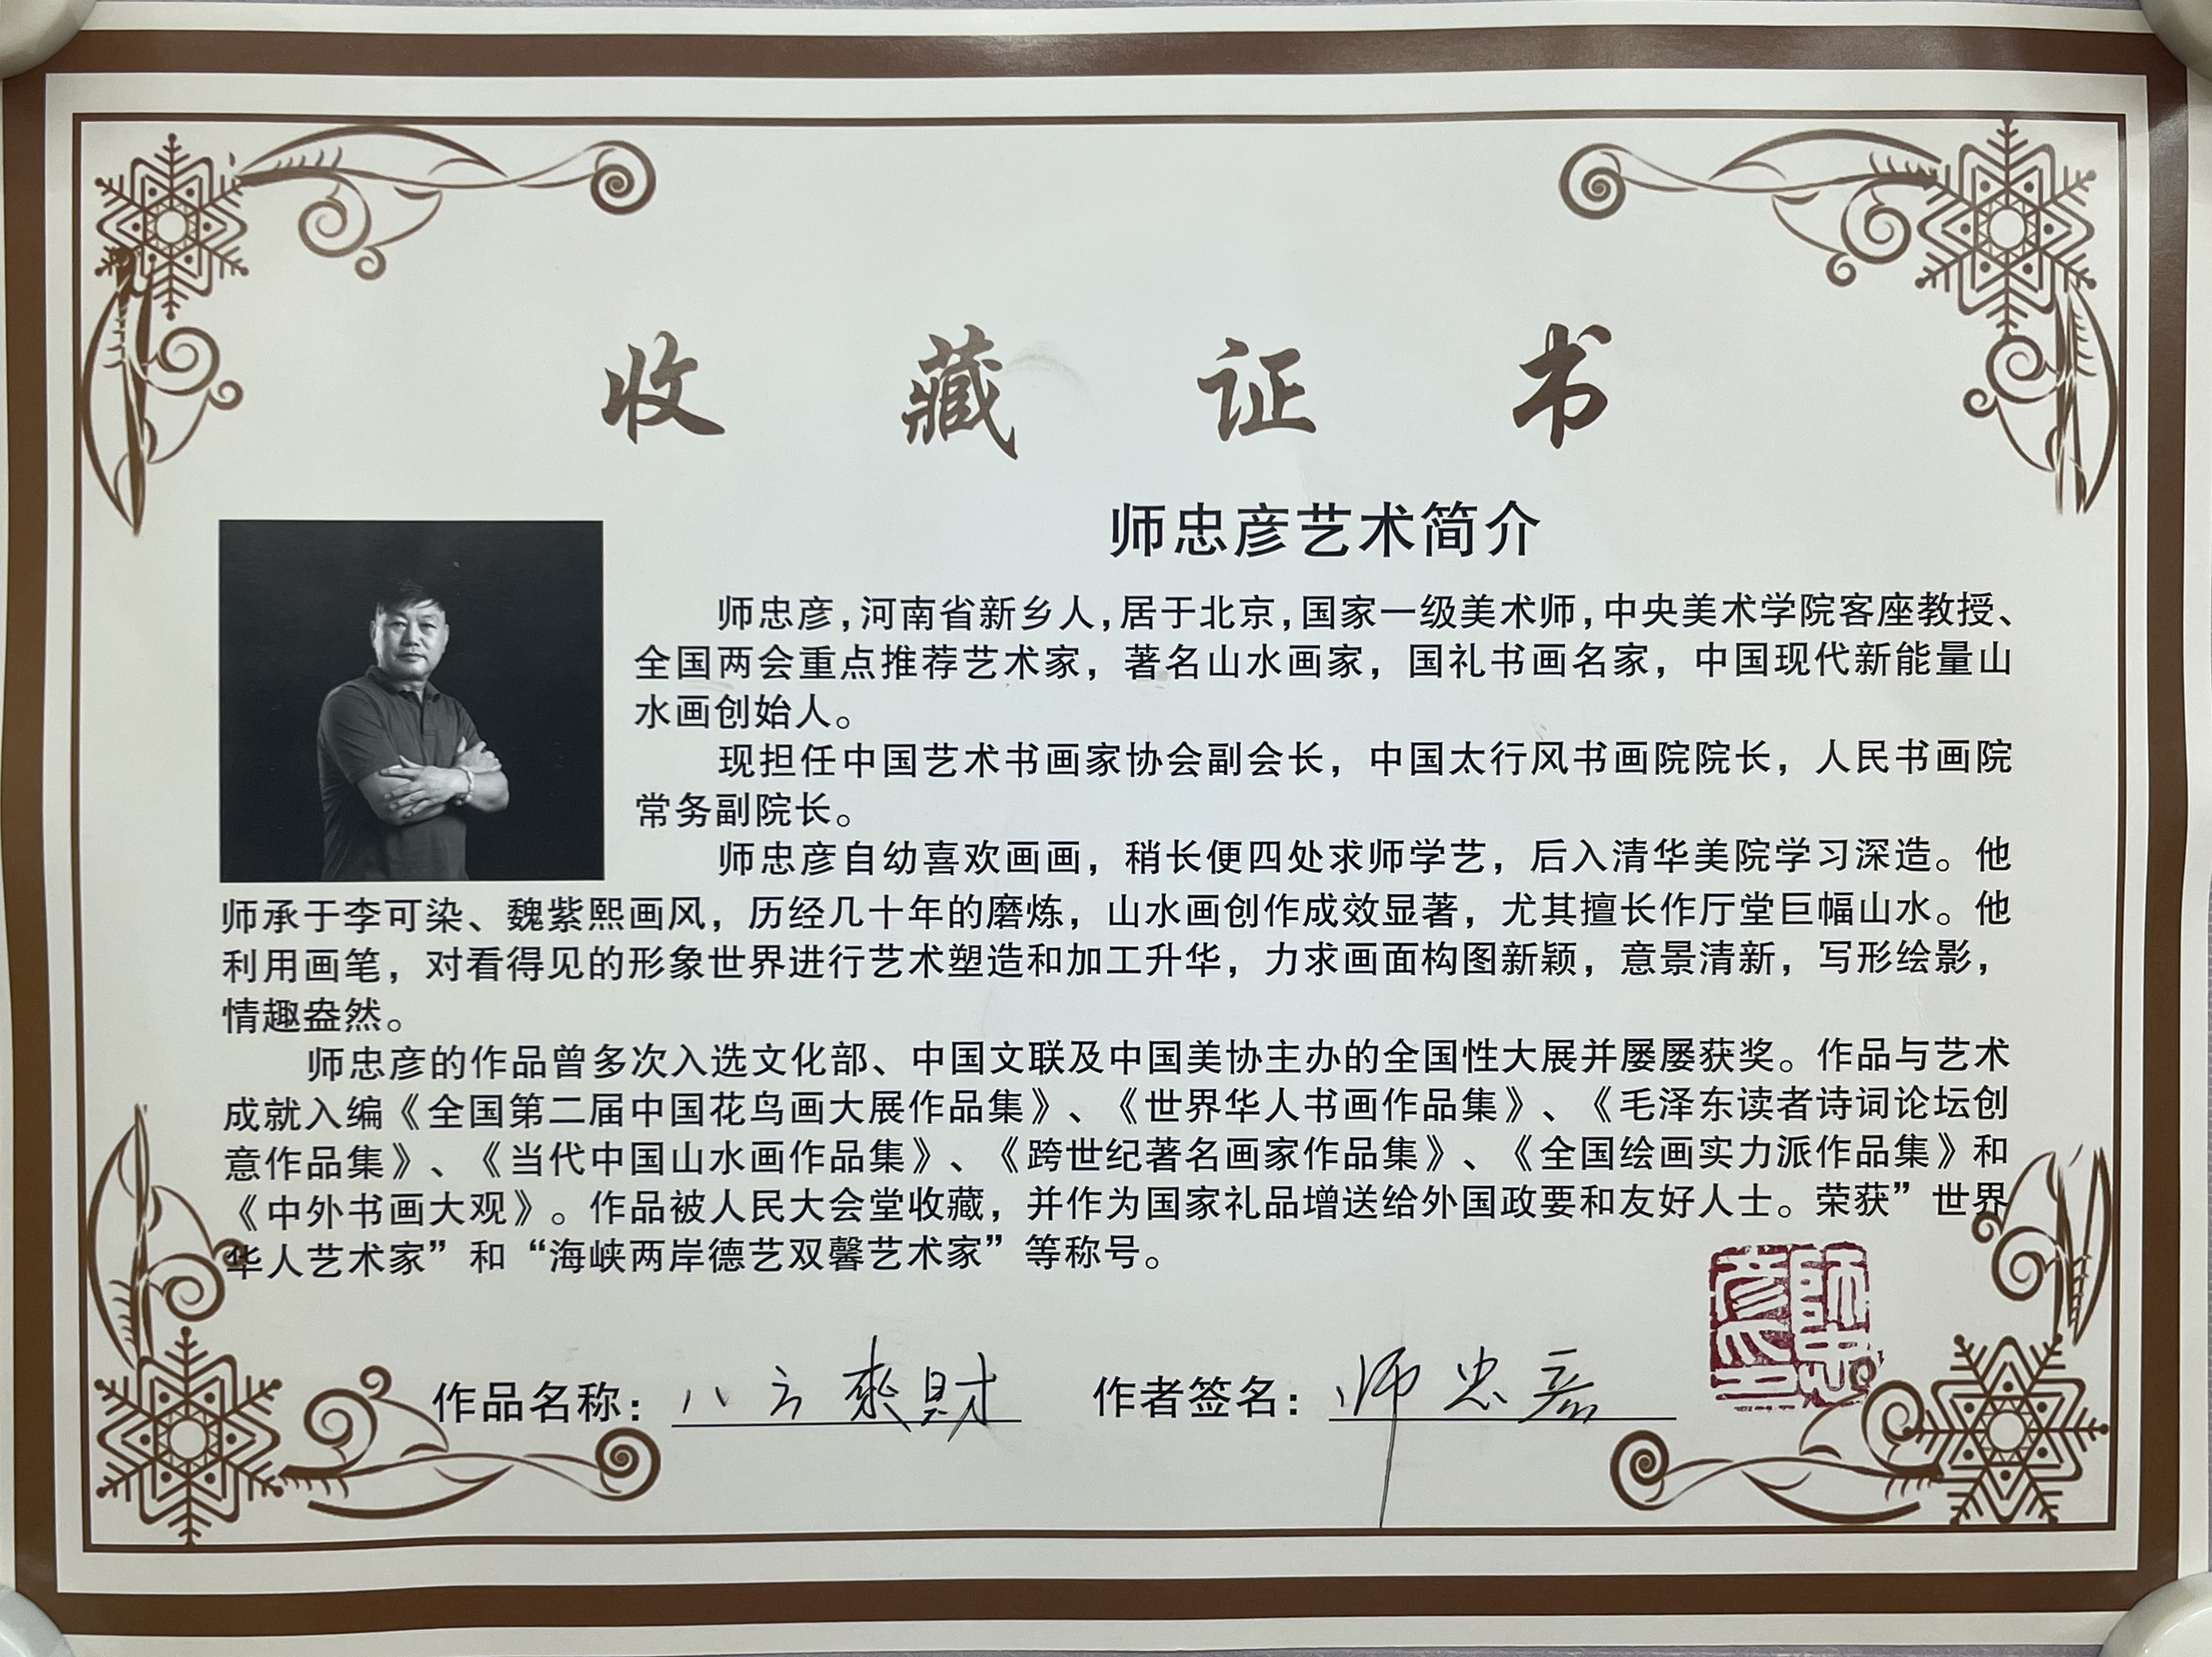 收藏证书
师忠彦艺术简介
师忠彦,河南省新乡人,居于北京,国家一级美术师,中央美术学院客座教授、
全国两会重点推荐艺术家，著名山水画家，国礼书画名家，中国现代新能量山
水画创始人。
现担任中国艺术书画家协会副会长，中国太行风书画院院长，人民书画院
常务副院长。
师忠彦自幼喜欢画画，稍长便四处求师学艺，后入清华美院学习深造。他
师承于李可染、魏紫熙画风，历经几十年的磨炼，山水画创作成效显著，尤其擅长作厅堂巨幅山水。他
利用画笔，对看得见的形象世界进行艺术塑造和加工升华，力求画面构图新颖，意景清新，写形绘影，
情趣盎然。
师忠彦的作品曾多次入选文化部、中国文联及中国美协主办的全国性大展并屡屡获奖。作品与艺术
成就入编《全国第二届中国花鸟画大展作品集》、《世界华人书画作品集》、《毛泽东读者诗词论坛创
意作品集》、《当代中国山水画作品集》、《跨世纪著名画家作品集》、《全国绘画实力派作品集》和
《中外书画大观》。作品被人民大会堂收藏，并作为国家礼品增送给外国政要和友好人士。荣获”世界
华人艺术家”和“海峡两岸德艺双馨艺术家”等称号。
作品名称：八方來财 作者签名：师忠彦
師忠彦印